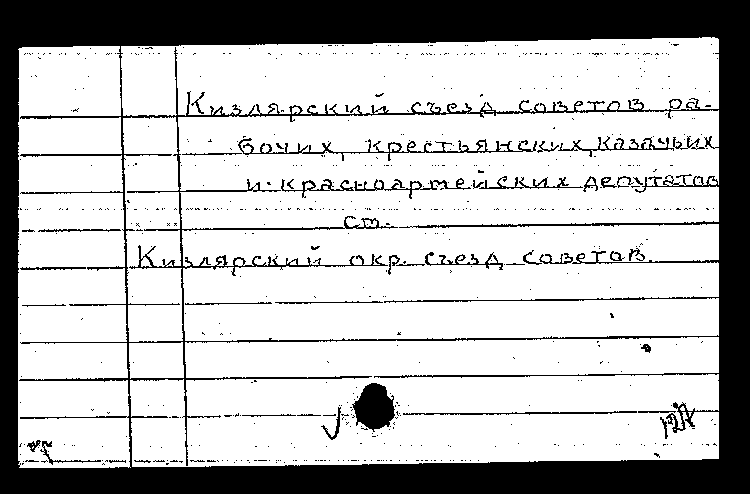 Кизлярский съезд советов ра-
бочих, крестьянских, казачьих
и красноармейских депутатов
см.
Кизлярский окр. съезд советов.